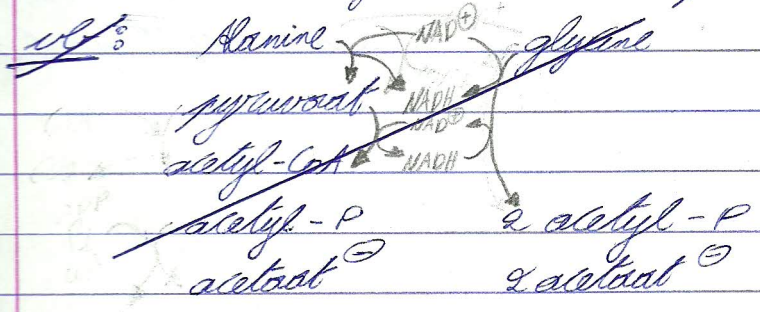 vb: Alanine NAD⊕ glycine
pyruvaat NADH
NAD⊕
acetyl-CoA NADH
acetyl-P 2 acetyl-P
acetaat⊖ 2 acetaat⊖